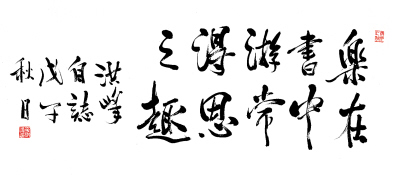 樂在
書中
游常
得思
之趣
洪峰
自誌
戊子
秋月